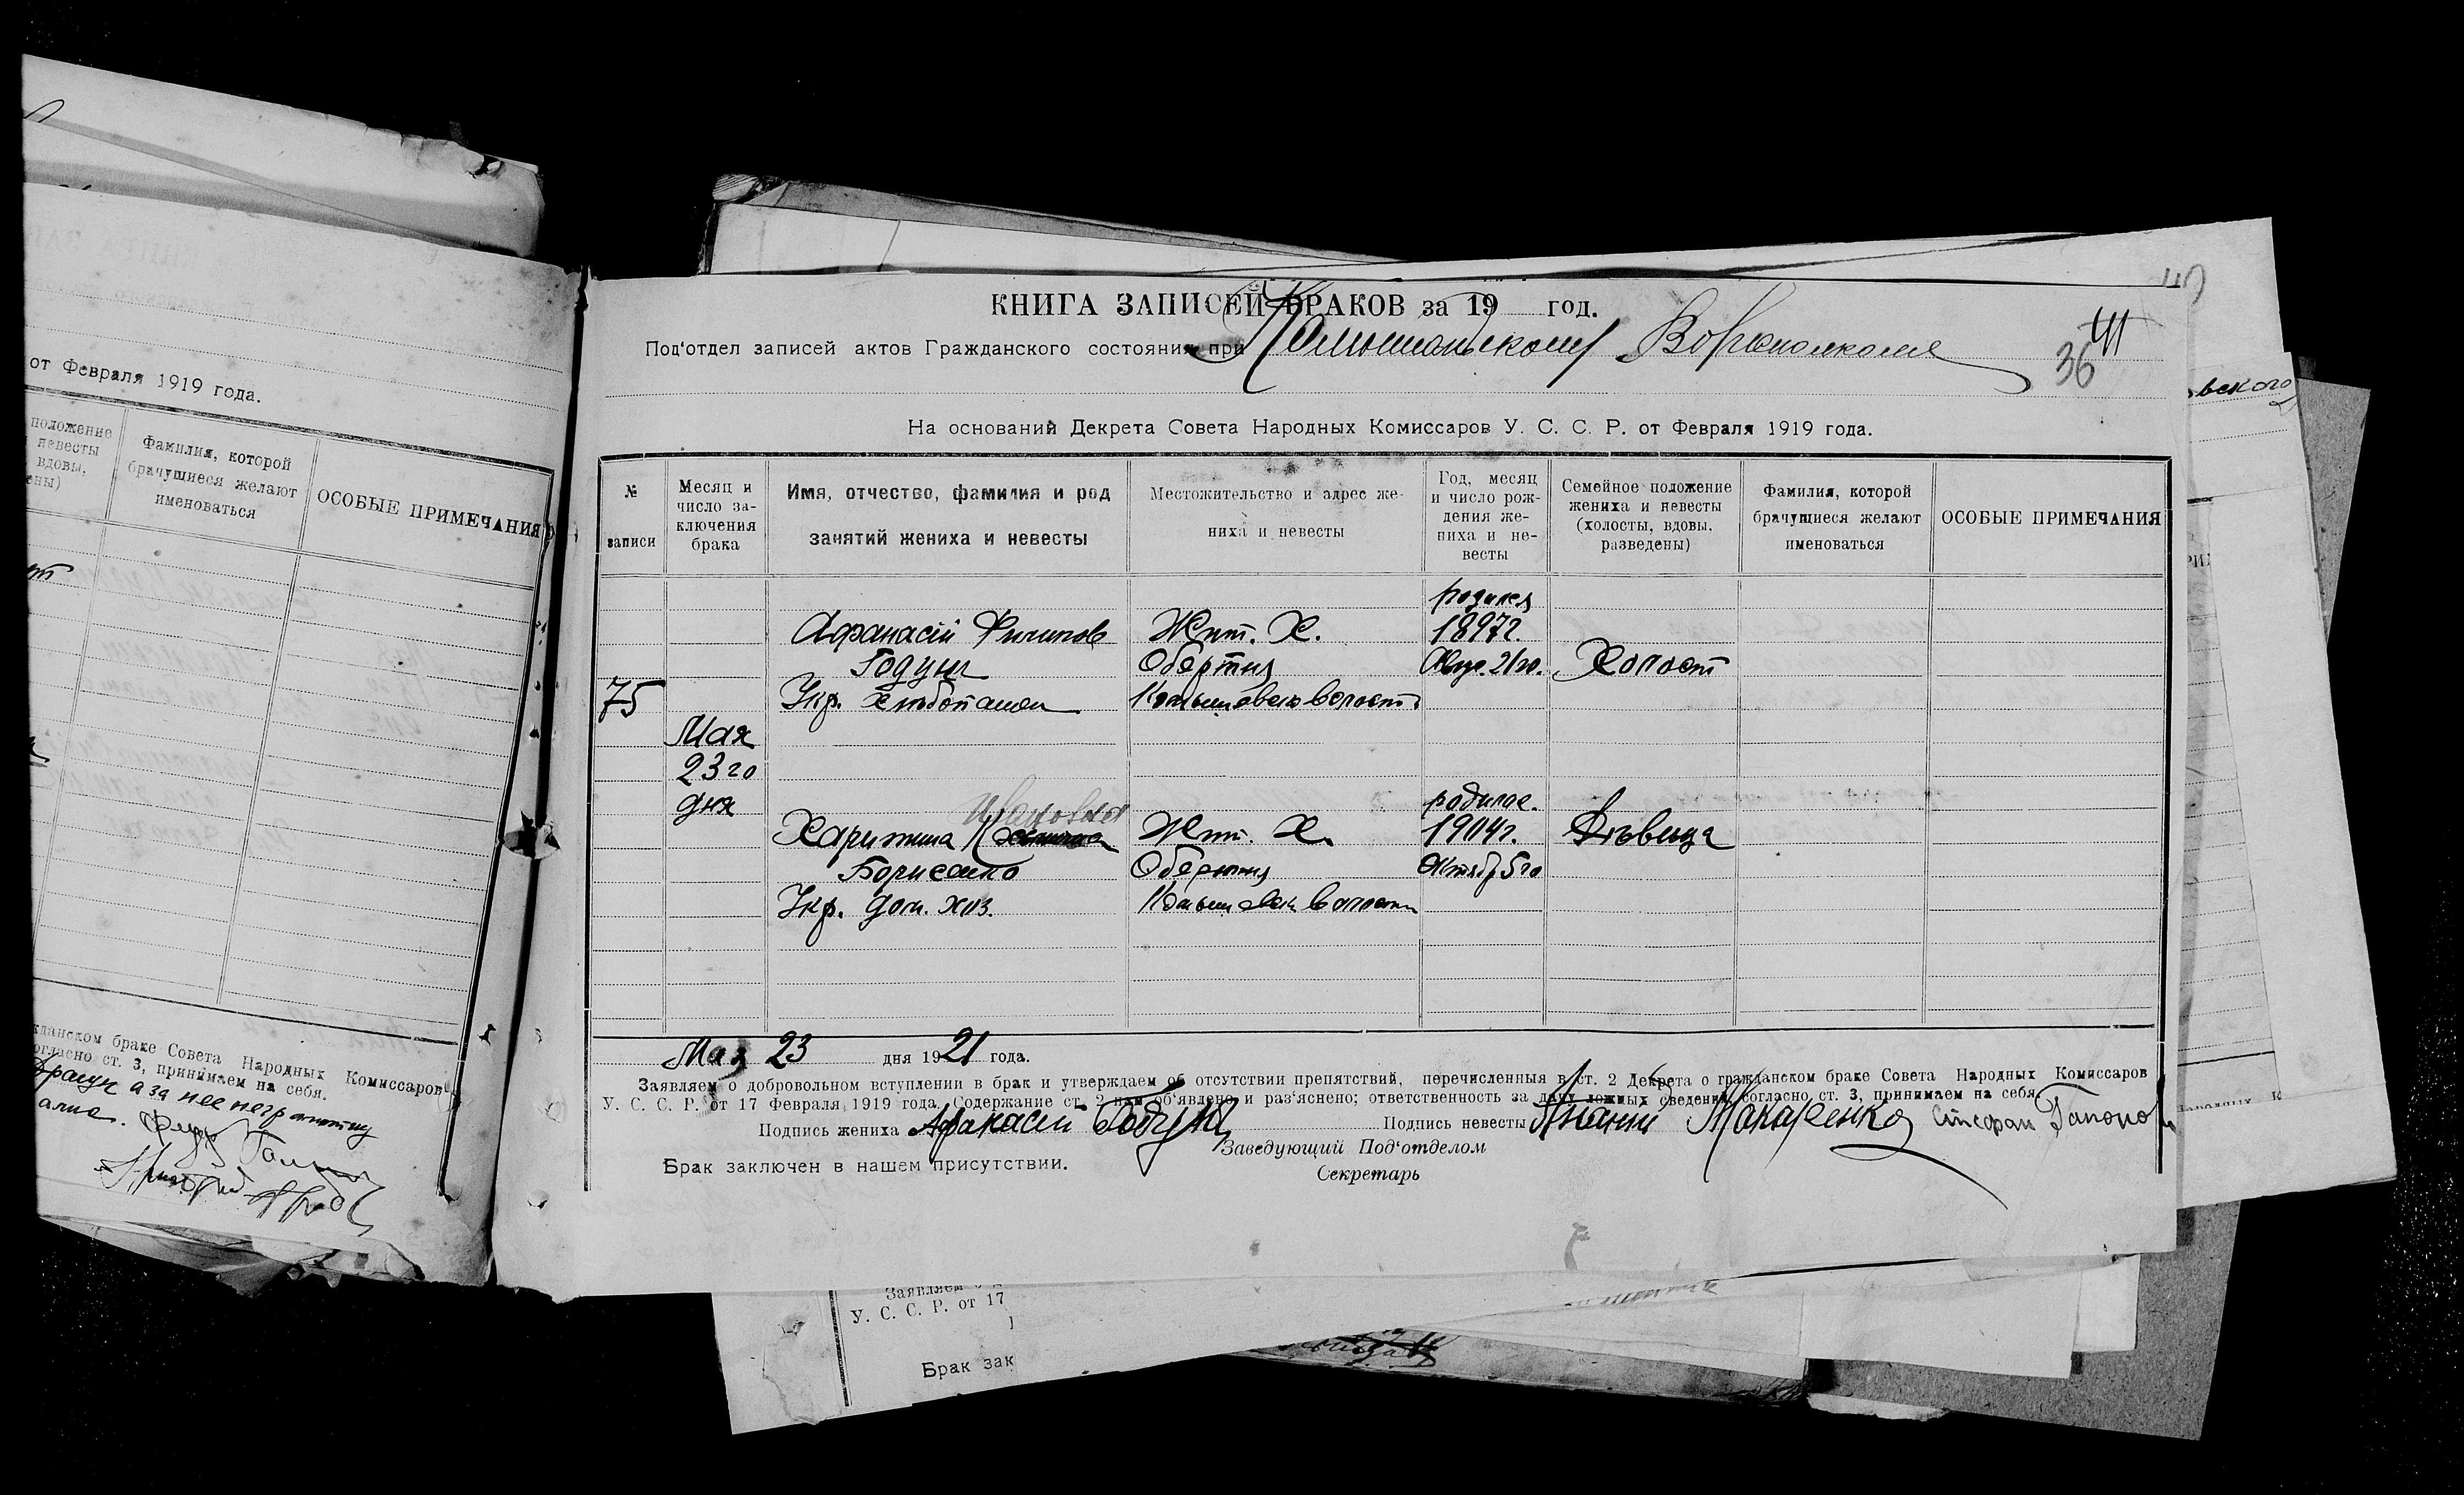 от Февраля 1919 года.
положение
невесты
вдовы,
Фамилия, которой
брачущиеся желают
именоваться
ОСОБЫЕ ПРИМЕЧАНИЯ
жданском браке Совета Народных Комиссаров
огласно ст. 3, принимаем на себя.
а за нее неграмотну
КНИГА ЗАПИСЕЙ БРАКОВ за 19 год.
Под'отдел записей актов Гражданского состояния при
36
На оснований Декрета Совета Народных Комиссаров У. С. С. Р. от Февраля 1919 года.
№
записи
Месяц и
число за-
ключения
брака
Имя, отчество, фамилия и род
занятий жениха и невесты
Местожительство и адрес же-
ниха и невесты
Год, месяц
и число рож-
дения же-
ниха и не-
весты
Семейное положение
жениха и невесты
(холосты, вдовы,
разведены)
Фамилия, которой
брачущиеся желают
именоваться
ОСОБЫЕ ПРИМЕЧАНИЯ
75
Мая
23го
дня
Афанасій Филипов
Годун
Укр. хлебопашец
Жит. Х.
Обертня
родился
1897г.
Авгу. 21го.
Холост
Ивановна
Харитина
Борисенко
Укр. дом. хоз.
Жит. Х.
Обертня
родилас.
1904г.
Октябр 5го
Дѣвица
Мая 23 дня 1921 года.
Заявляем о добровольном вступлении в брак и утверждаем об отсутствии препятствий, перечисленныя в ст. 2 Декрета о гражданском браке Совета Народных Комиссаров
У. С. С. Р. от 17 Февраля 1919 года. Содержание ст. 2 нам об'явлено и раз'яснено; ответственность за дачу ложных сведений, согласно ст. 3, принимаем на себя.
Подпись жениха Афанасій Годун Подпись невесты Ананий Макаренко Стефан
Заведующий Под'отделом
Брак заключен в нашем присутствии.
Секретарь
Заявляем
У. С. С. Р. от 17
Брак зак